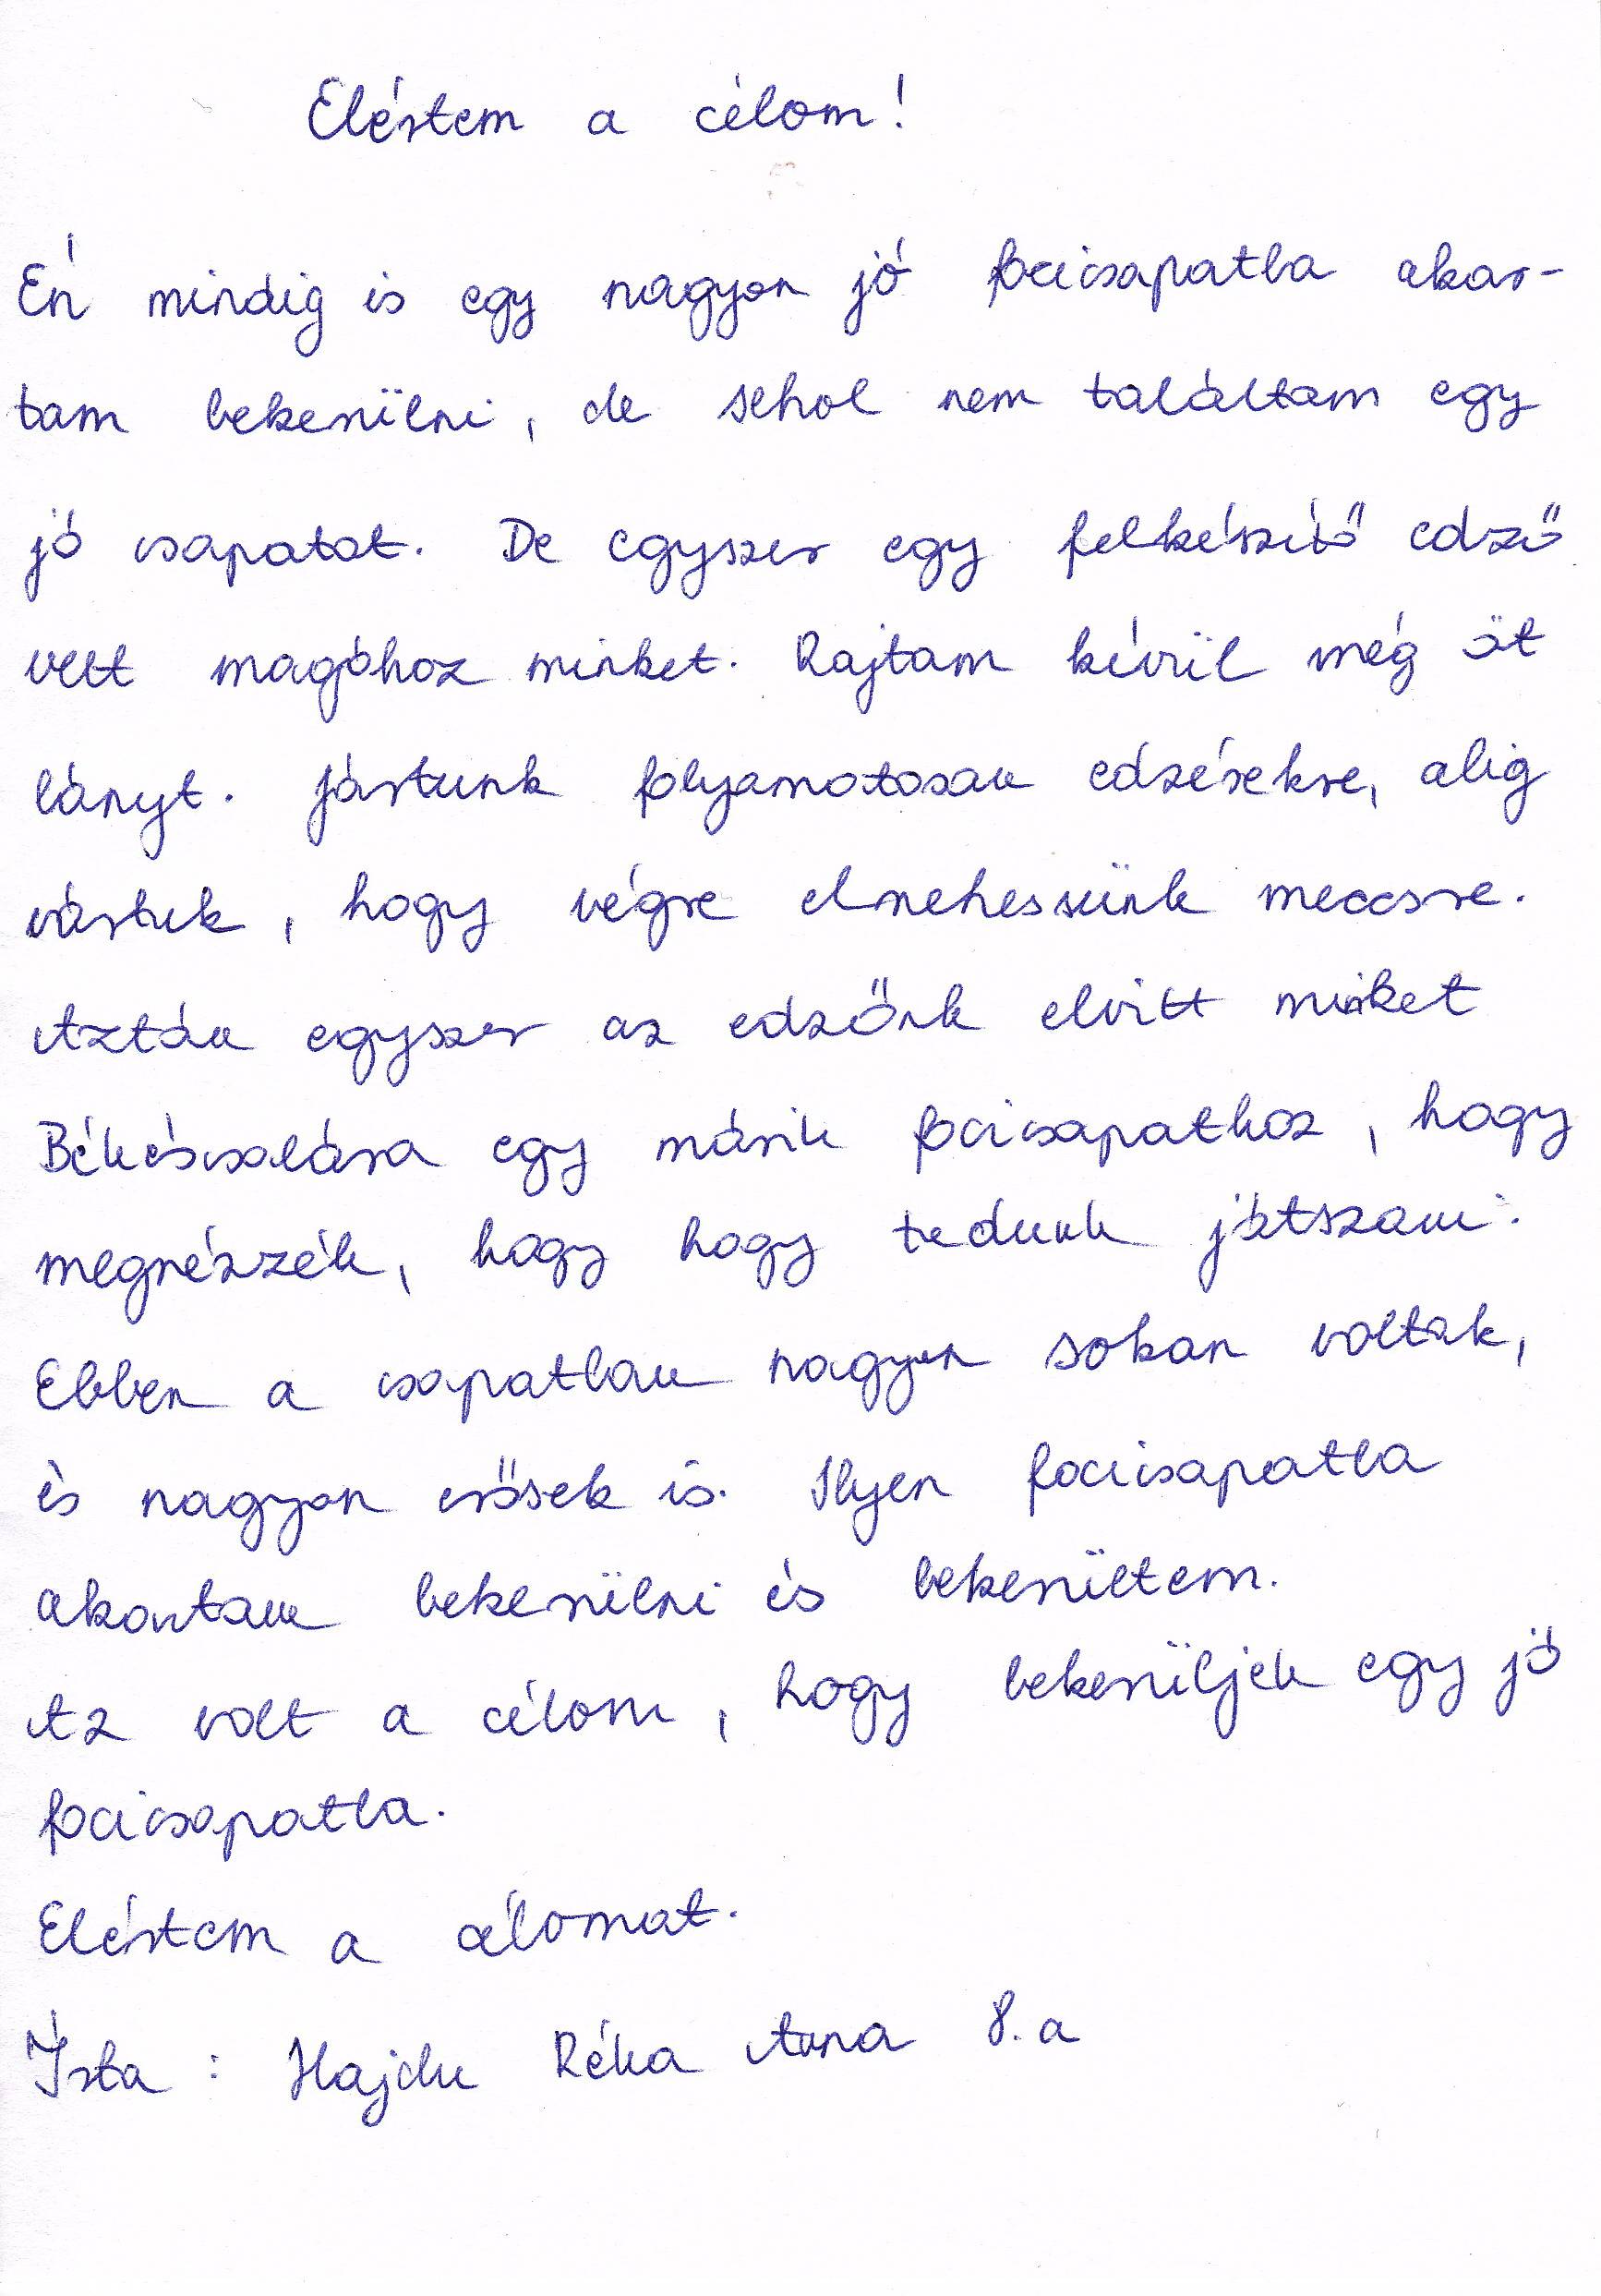 Elértem a célom!
Én mindig is egy nagyon jó focicsapatba akar-
tam bekerülni, de sehol nem találtam egy
jó csapatot. De egyszer egy felkészítő edző
vett magához minket. Rajtam kívül még öt
lányt. Jártunk folyamatosan edzésekre, alig
vártuk, hogy végre elmehessünk meccsre.
Aztán egyszer az edzőnk elvitt minket
Békéscsabára egy másik focicsapathoz, hogy
megnézzék, hogy hogy tudunk játszani.
Ebben a csapatban nagyon sokan voltak,
és nagyon erősek is. Ilyen focicsapatba
akartam bekerülni és bekerültem.
Az volt a célom, hogy bekerüljek egy jó
focicsapatba.
Elértem a célomat.
Írta: Hajdu Réka Anna 8.a